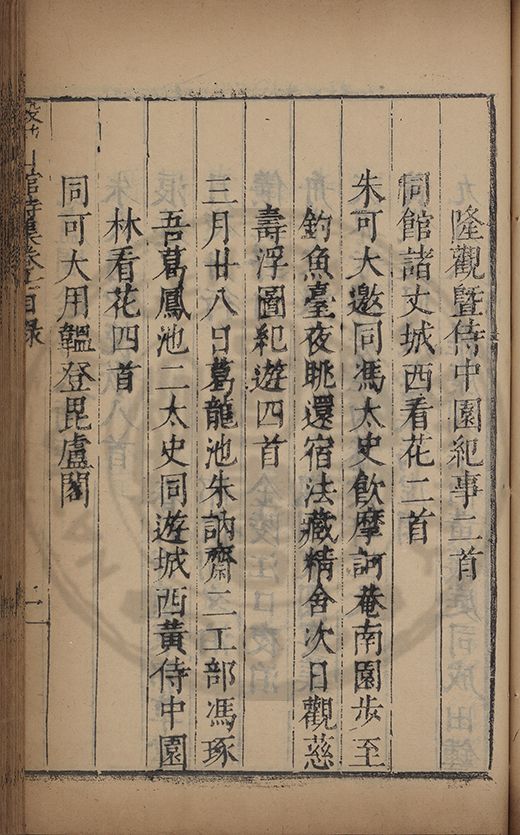 隆觀暨侍中園紀事二首
同館諸丈城西看花二首
朱可大邀同馮太史飲摩訶菴南園步至
釣魚臺夜眺還宿法藏精舍次日觀慈
壽浮圖紀遊四首
三月廿八日葛龍池朱訥齋二工部馮琢
吾葛鳳池二太史同遊城西黃侍中園
林看花四首
同可大用韞登毘盧閣
山館詩集卷目錄
二